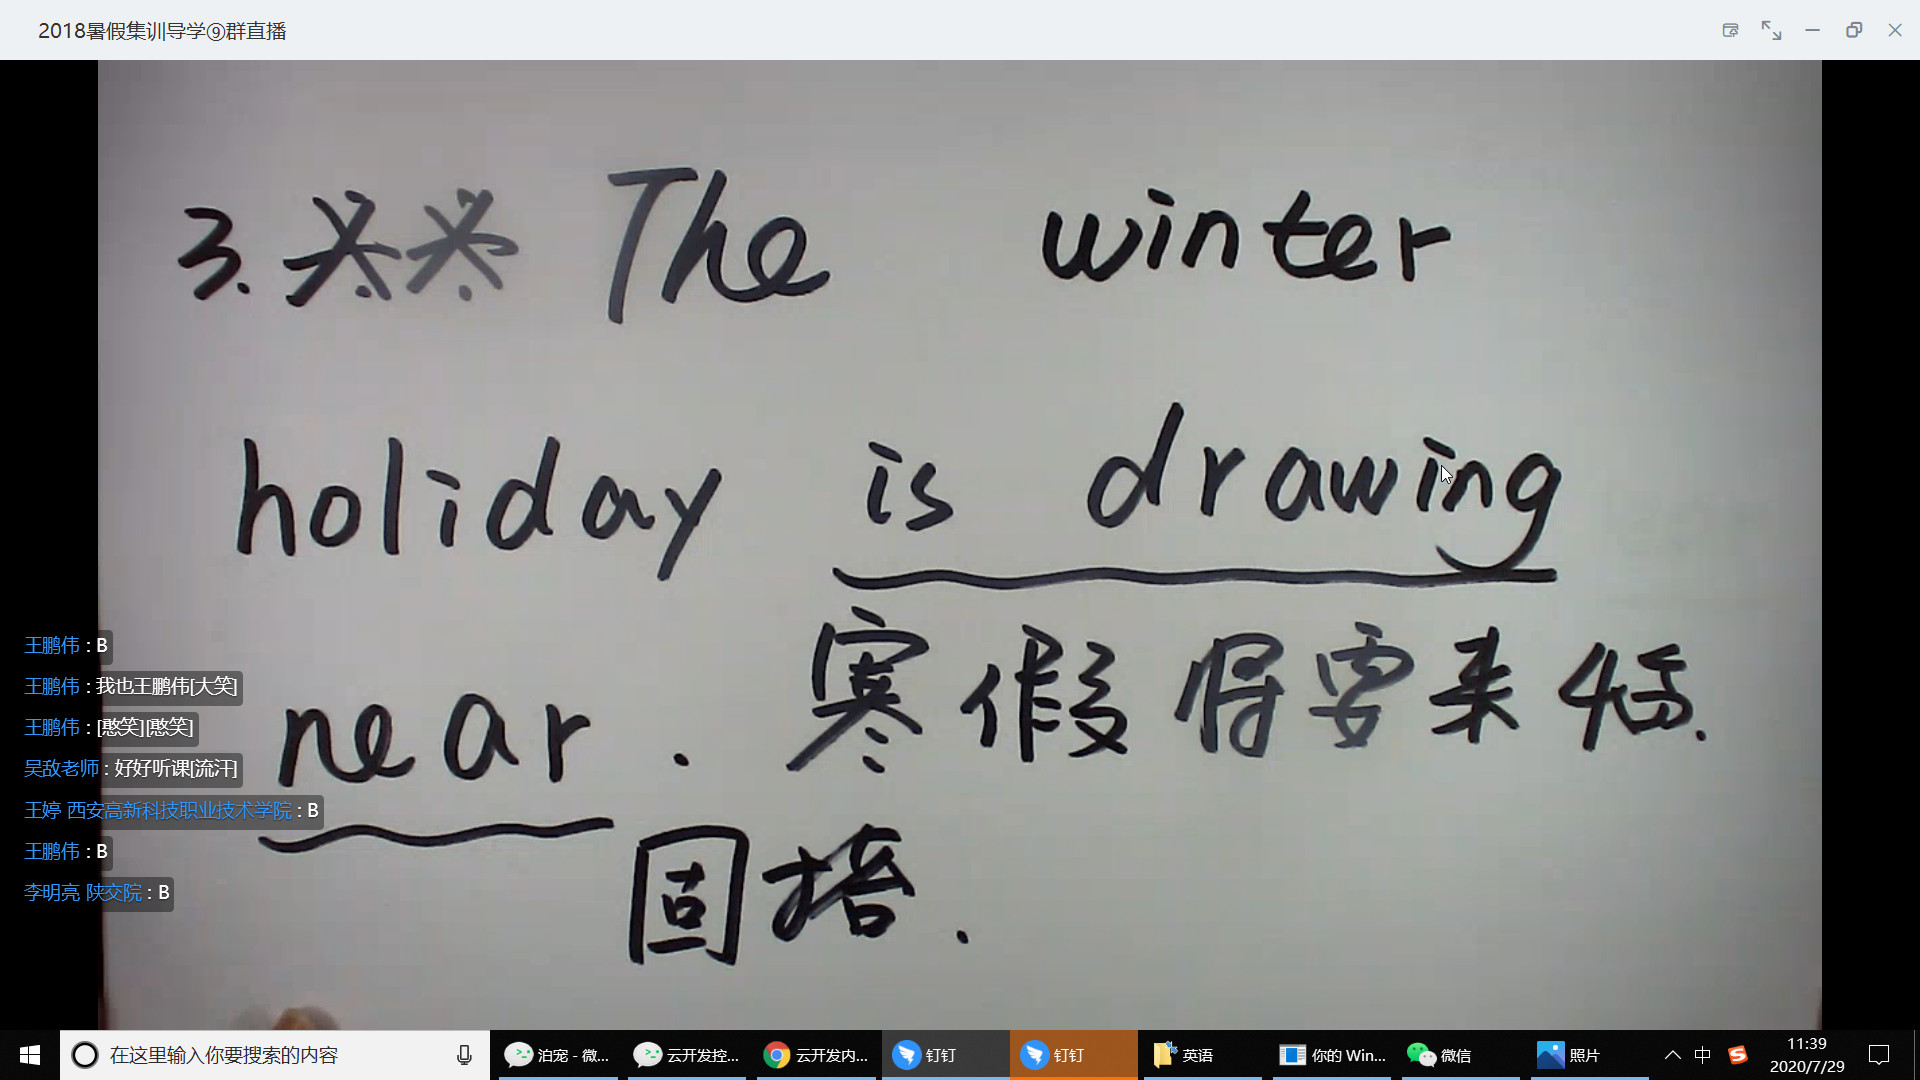 2018暑假集训导学⑨群直播
3.※※ The winter
holiday is drawing
near. 寒假将要来临.
固搭.
王鹏伟 : B
王鹏伟 : 我也王鹏伟[大笑]
王鹏伟 : [憨笑][憨笑]
吴敌老师 : 好好听课[流汗]
王婷 西安高新科技职业技术学院 : B
王鹏伟 : B
李明亮 陕交院 : B
在这里输入你要搜索的内容
泊宠 - 微...
云开发控...
云开发内...
钉钉
钉钉
英语
你的 Win...
微信
照片
中
11:39
2020/7/29